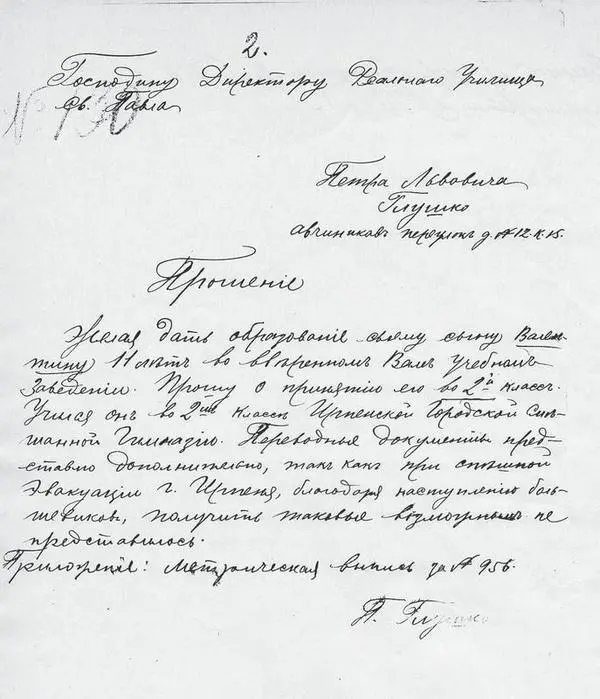 2.
Господину Директору Реальнаго Училища
Св. Павла
№ 130
Петра Львовича
Глушко
Авчиниковъ переулокъ д. № 12. к. 15.
Прошеніе
Желая дать образованіе своему сыну Вален-
тину 11 лѣтъ во ввѣренномъ Вамъ учебномъ
Заведеніи. Прошу о принятіи его во 2й классъ.
Учился онъ во 2омъ классѣ Ирпенской Городской Смѣ-
шанной Гимназіи. Переводные документы пред-
ставлю дополнительно, такъ какъ при спѣшной
Эвакуаціи г. Ирпеня, благодаря наступленію боль-
шевиковъ, получить таковые возможнымъ не
представилось.
Приложеніе: Метрическая выпись за № 956.
П. Глушко